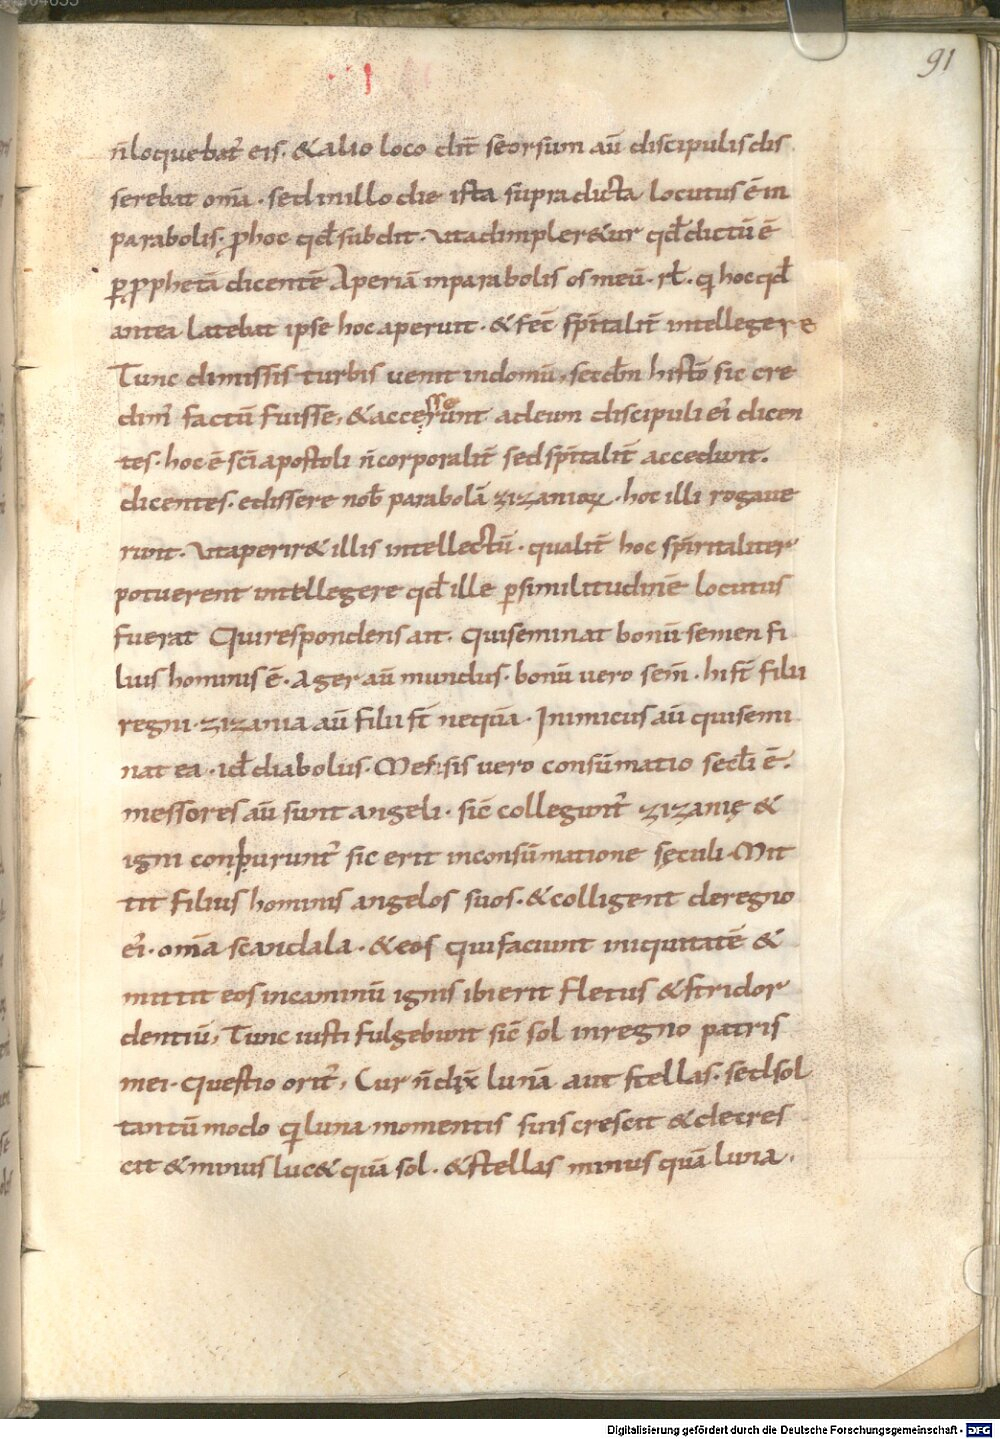 91
n̄loquebat̄ eis. &alio loco dic̄ seorsum aū discipulis dis
serebat om̄a. sed inillo die ista supradicta locutus ē in
parabolis. p̄hoc qđ subdit. Utadimpler&ur qđ dictū ē
ꝑ p̄phetā dicentē Aperiā inparabolis os meū. rł. q̄ hoc qđ
antea latebat ipse hoc aperuit. & fec̄ sp̄italit̄ intellegere
Tunc dimissis turbis uenit indomū, secđm histō sic cre
dim̄ factū fuisse, &accesserunt adeum discipuli ei dicen
tes. hoc ē sc̄i apostoli n̄ corporalit̄ sed sp̄italit̄ accedunt.
dicentes. edissere nob̄ parabolā zizanioꝝ. hoc illi rogaue
runt. Utaperir& illis intellectū. qualit̄ hoc sp̄iritaliter
potuerent intellegere qđ ille ꝑsimilitudinē locutus
fuerat Quirespondens ait. Quiseminat bonū semen fi
lius hominis ē. Ager aū mundus. bonū uero sem̄. hi st̄ filii
regni. zizania aū filii st̄ nequā. Inimicus aū quisemi
nat ea. iđ diabolus. Messis uero consūmatio secłi ē.
messores aū sunt angeli. sic̄ collegunt̄ zizanię &
igni conpurunt̄ sic erit inconsūmatione sęculi. Mit
tit filius hominis angelos suos. &colligent deregno
ei. om̄a scandala. &eos quifaciunt iniquitatē &
mittit eos incaminū ignis ibi erit fletus &stridor
dentiū, Tunc iusti fulgebunt sic̄ sol inregno patris
mei. Questio orit̄, Cur n̄ dix̄ lunā aut stellas. sed sol
tantū modo q̄ luna momentis suis crescit &decres
cit &minus luc& quā sol. &stellas minus quā luna.
Digitalisierung gefördert durch die Deutsche Forschungsgemeinschaft - DFG